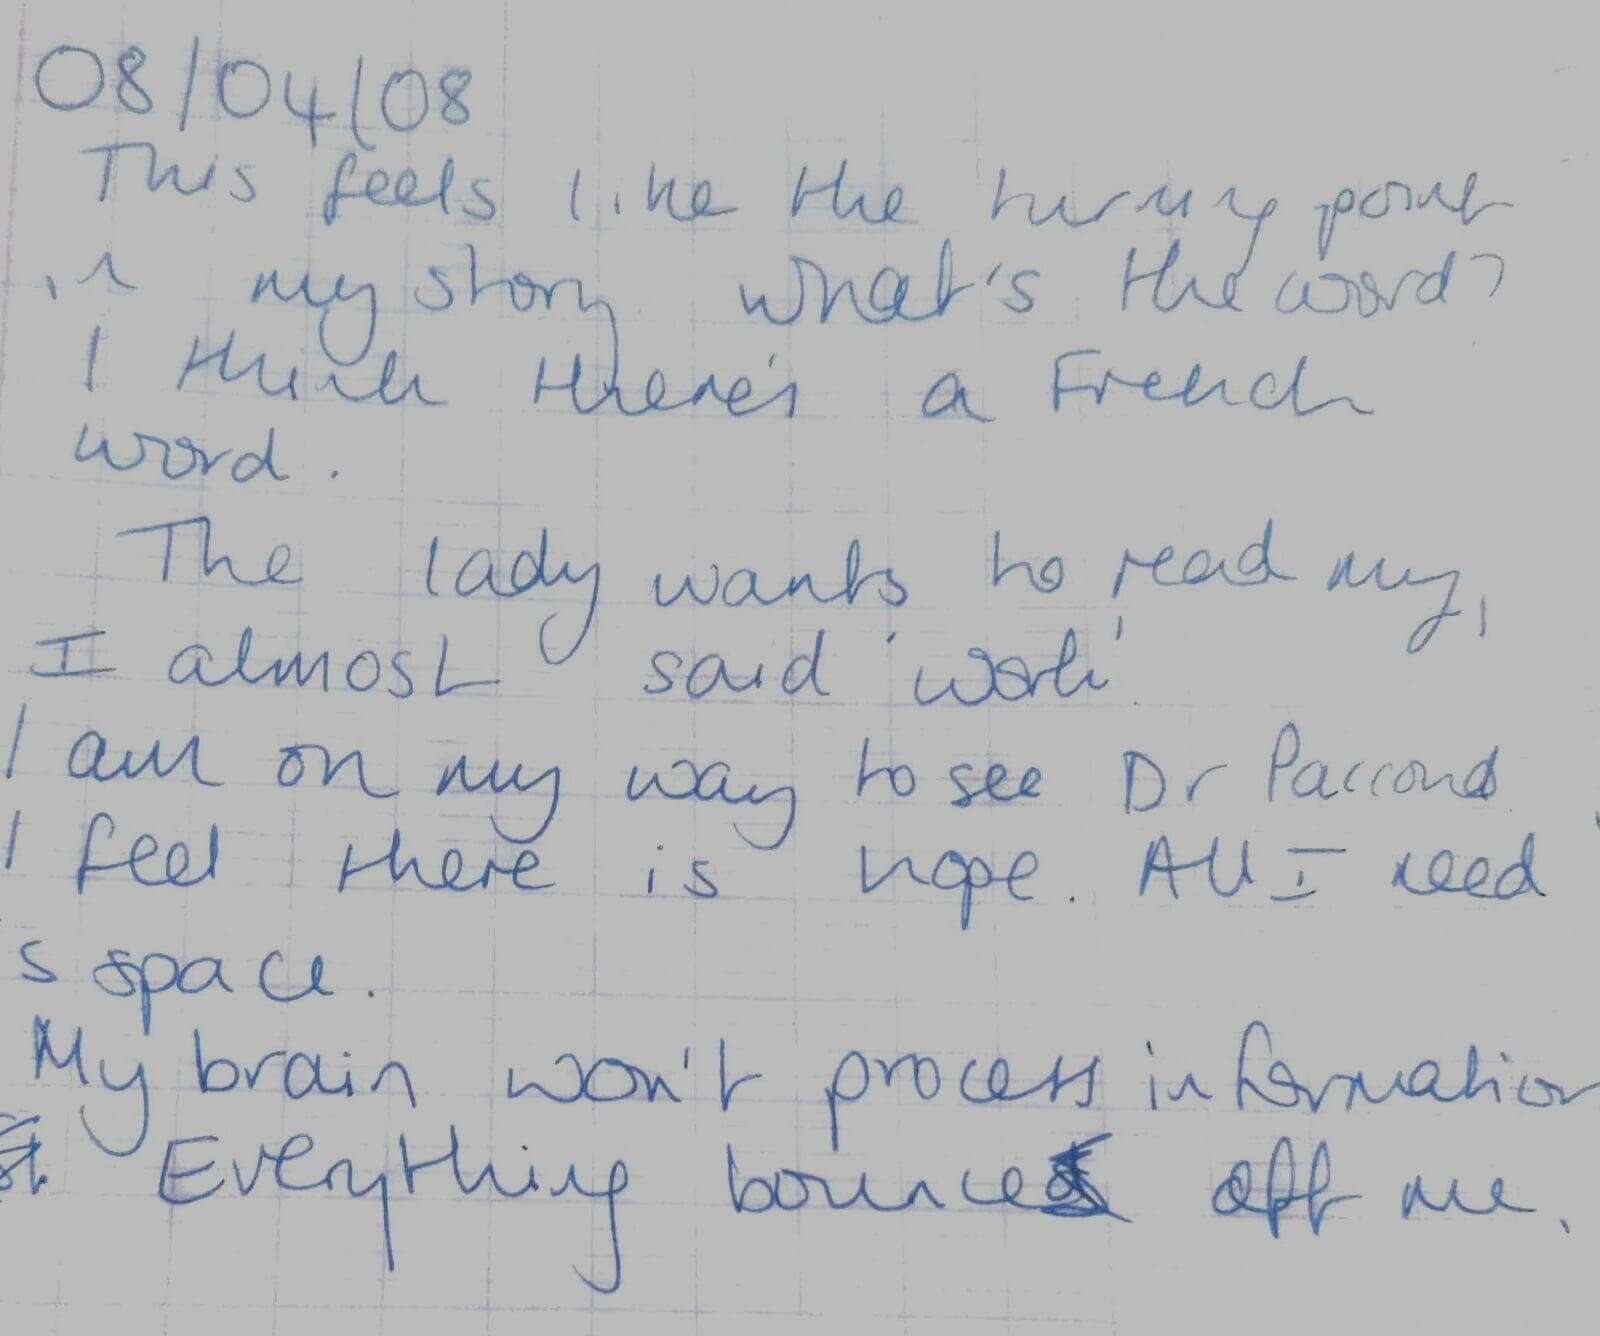 08/04/08
This feels like the turning point
in my story. What's the word?
I think there's a French
word.
The lady wants to read my,
I almost said 'work'.
I am on my way to see Dr
I feel there is hope. All I need
s space.
My brain won't process information
Everything bounces off me.